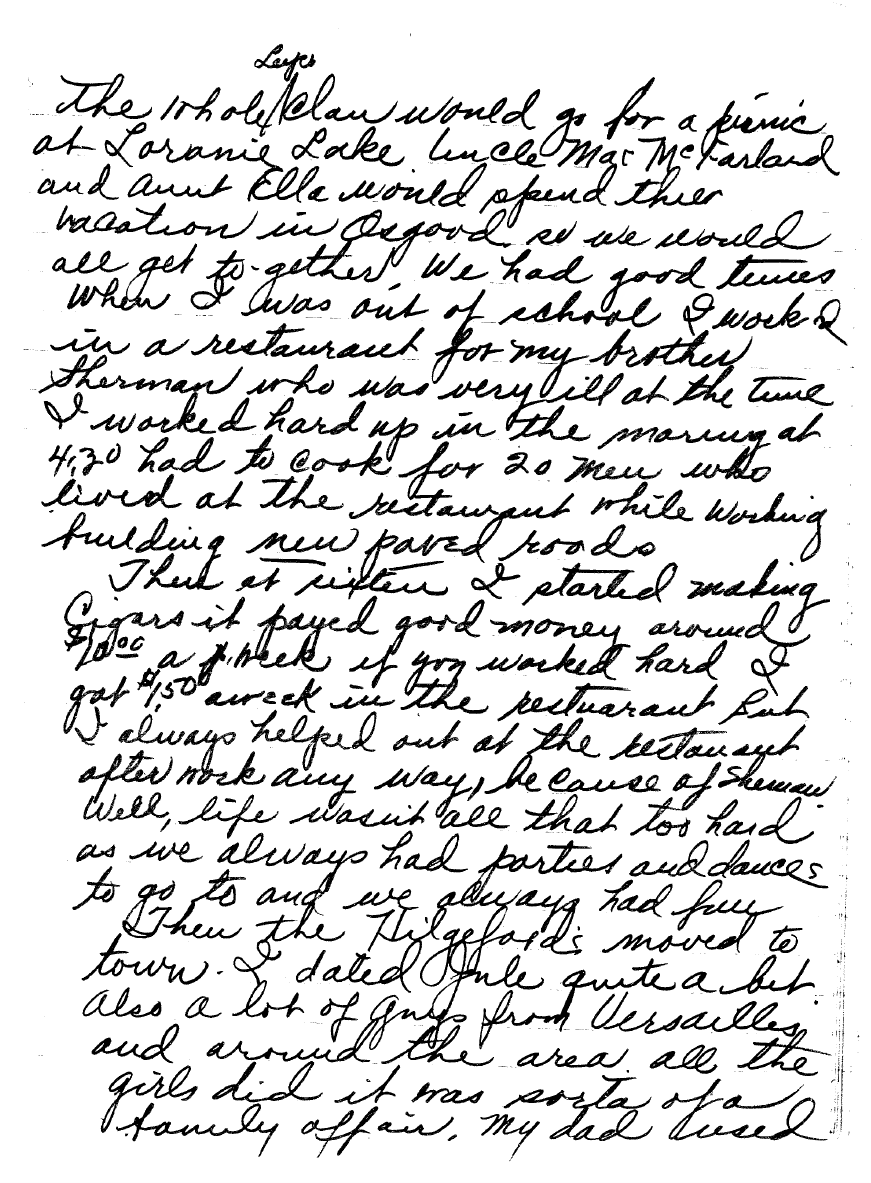 Layes
The whole clan would go for a picnic
at Loranie Lake Uncle Mac McFarland
and Aunt Ella would spend thier
vacation in Osgood so we would
all get to-gether We had good times
When I was out of school I worked
in a restaurant for my brother
Sherman who was very ill at the time
I worked hard up in the moring at
4:30 had to cook for 20 men who
lived at the restaurant while working
building new paved roads
Then at sixteen I started making
Cigars it payed good money around
$10.00 a week if you worked hard I
got $1.50 aweek in the restuarant But
I always helped out at the restaurant
after work any way, because of Sherman
Well, life wasn't all that too hard
as we always had parties and dances
to go to and we always had fun
Then the Hilgefords moved to
town. I dated Jule quite a bit
also a lot of guys from Versailles
and around the area all the
girls did it was sorta of a
family affair. My dad used